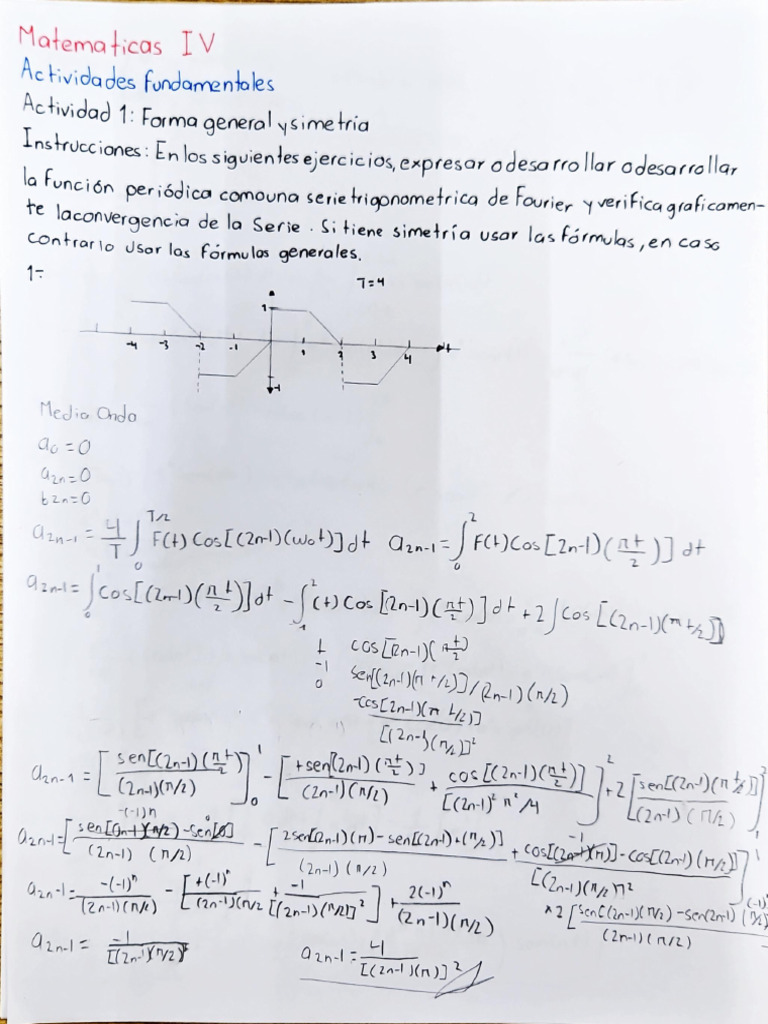 Matematicas IV
Actividades fundamentales
Actividad 1: Forma general y simetría
Instrucciones: En los siguientes ejercicios, expresar o desarrollar o desarrollar
la función periódica como una serie trigonometrica de Fourier y verifica graficamen-
te la convergencia de la Serie. Si tiene simetría usar las fórmulas, en caso
contrario usar las fórmulas generales.
1=
T=4
1
-4 -3 -2 -1 1 2 3 4 t
-1
Media Onda
a₀=0
a₂ₙ=0
b₂ₙ=0
a₂ₙ₋₁ = 4/T ∫₀^(T/2) F(t) Cos[(2n-1)(ω₀t)] dt a₂ₙ₋₁ = ∫₀² F(t) Cos[2n-1)(πt/2)] dt
a₂ₙ₋₁ = ∫₀¹ Cos[(2n-1)(πt/2)] dt - ∫₁² (t) Cos[2n-1)(πt/2)] dt + 2∫Cos[(2n-1)(π t/2)]
t cos[(2n-1)(πt/2)
-1 sen[(2n-1)(π t/2)] / (2n-1)(π/2)
0 -cos[(2n-1)(π t/2)] / [(2n-1)(π/2)]²
a₂ₙ₋₁ = [sen[(2n-1)(πt/2)] / (2n-1)(π/2)]₀¹ - [t sen[(2n-1)(πt/2)] / (2n-1)(π/2) + cos[(2n-1)(πt/2)] / [(2n-1)² π²/4]² + 2[sen[(2n-1)(π t/2)] / (2n-1)(π/2)]₁²
-(-1)n 0 -1
a₂ₙ₋₁ = [sen[(2n-1)(π/2) - sen[0] / (2n-1)(π/2)] - [2sen[(2n-1)(π) - sen[(2n-1)(π/2)] / (2n-1)(π/2) + cos[(2n-1)(π)] - cos[(2n-1)(π/2)] / [(2n-1)(π/2)]²]
a₂ₙ₋₁ = -(-1)ⁿ / (2n-1)(π/2) - [+(-1)ⁿ / (2n-1)(π/2) + -1 / [(2n-1)(π/2)]²] + 2(-1)ⁿ / (2n-1)(π/2)
(-1)ⁿ
a₂ₙ₋₁ = -1 / [(2n-1)(π/2)² a₂ₙ₋₁ = 4 / [(2n-1)(π)]²